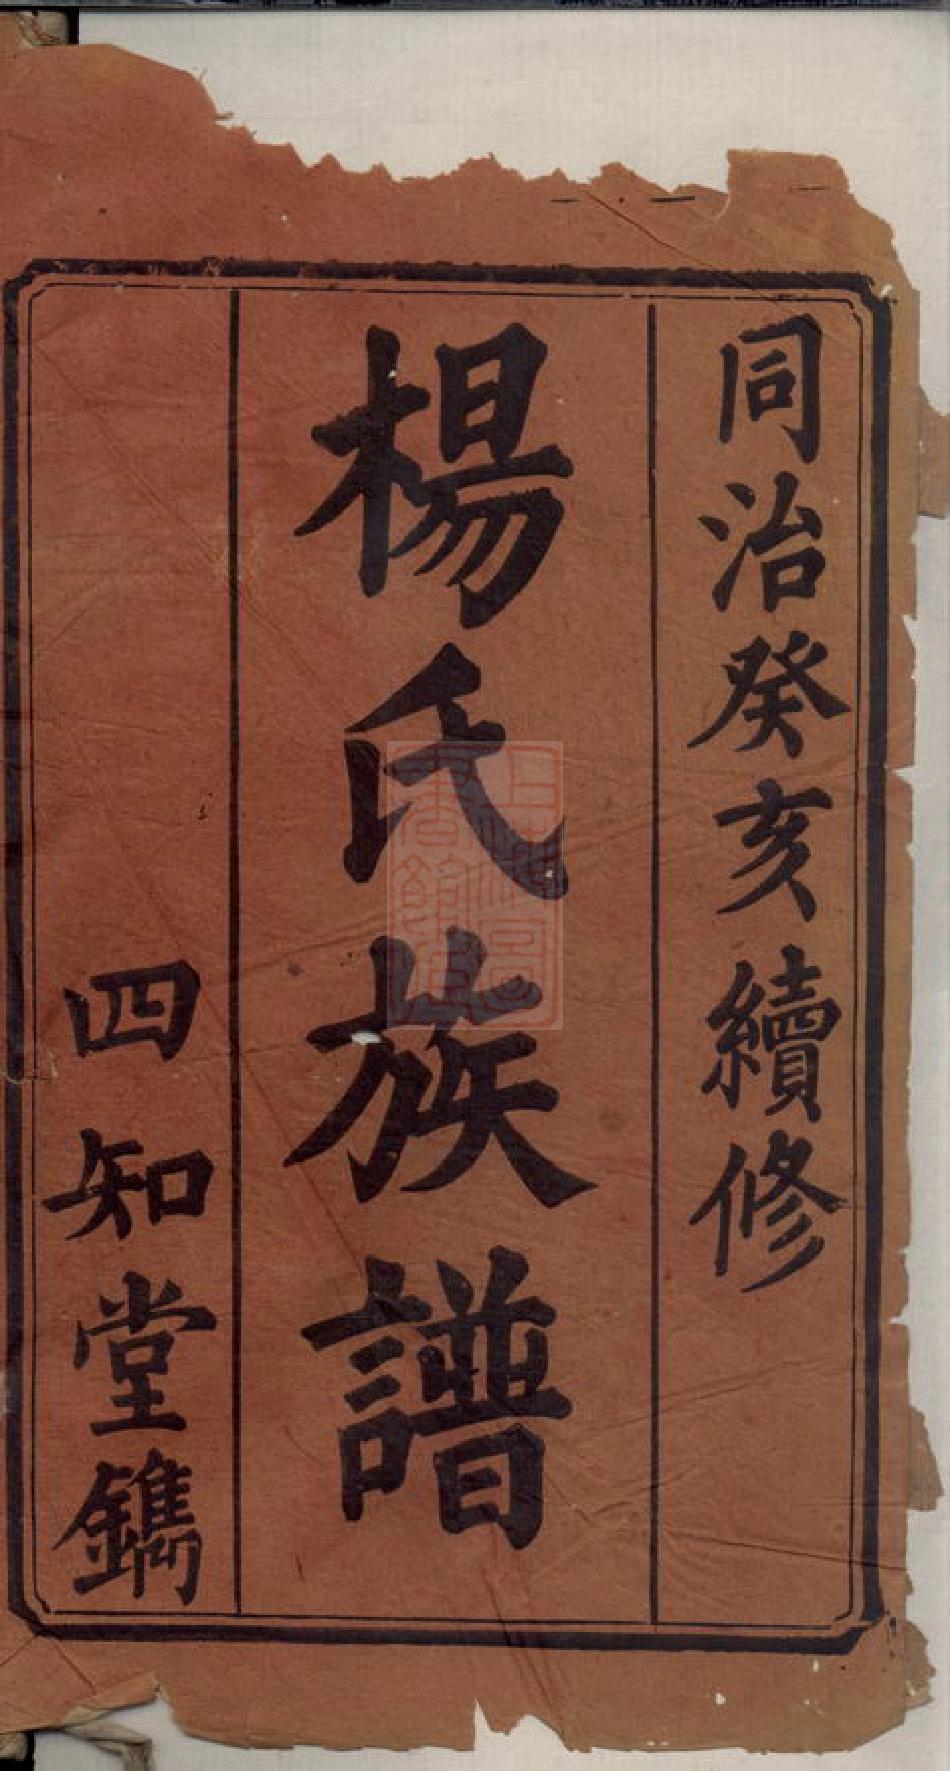 同治癸亥續修
楊氏族譜
四知堂鐫